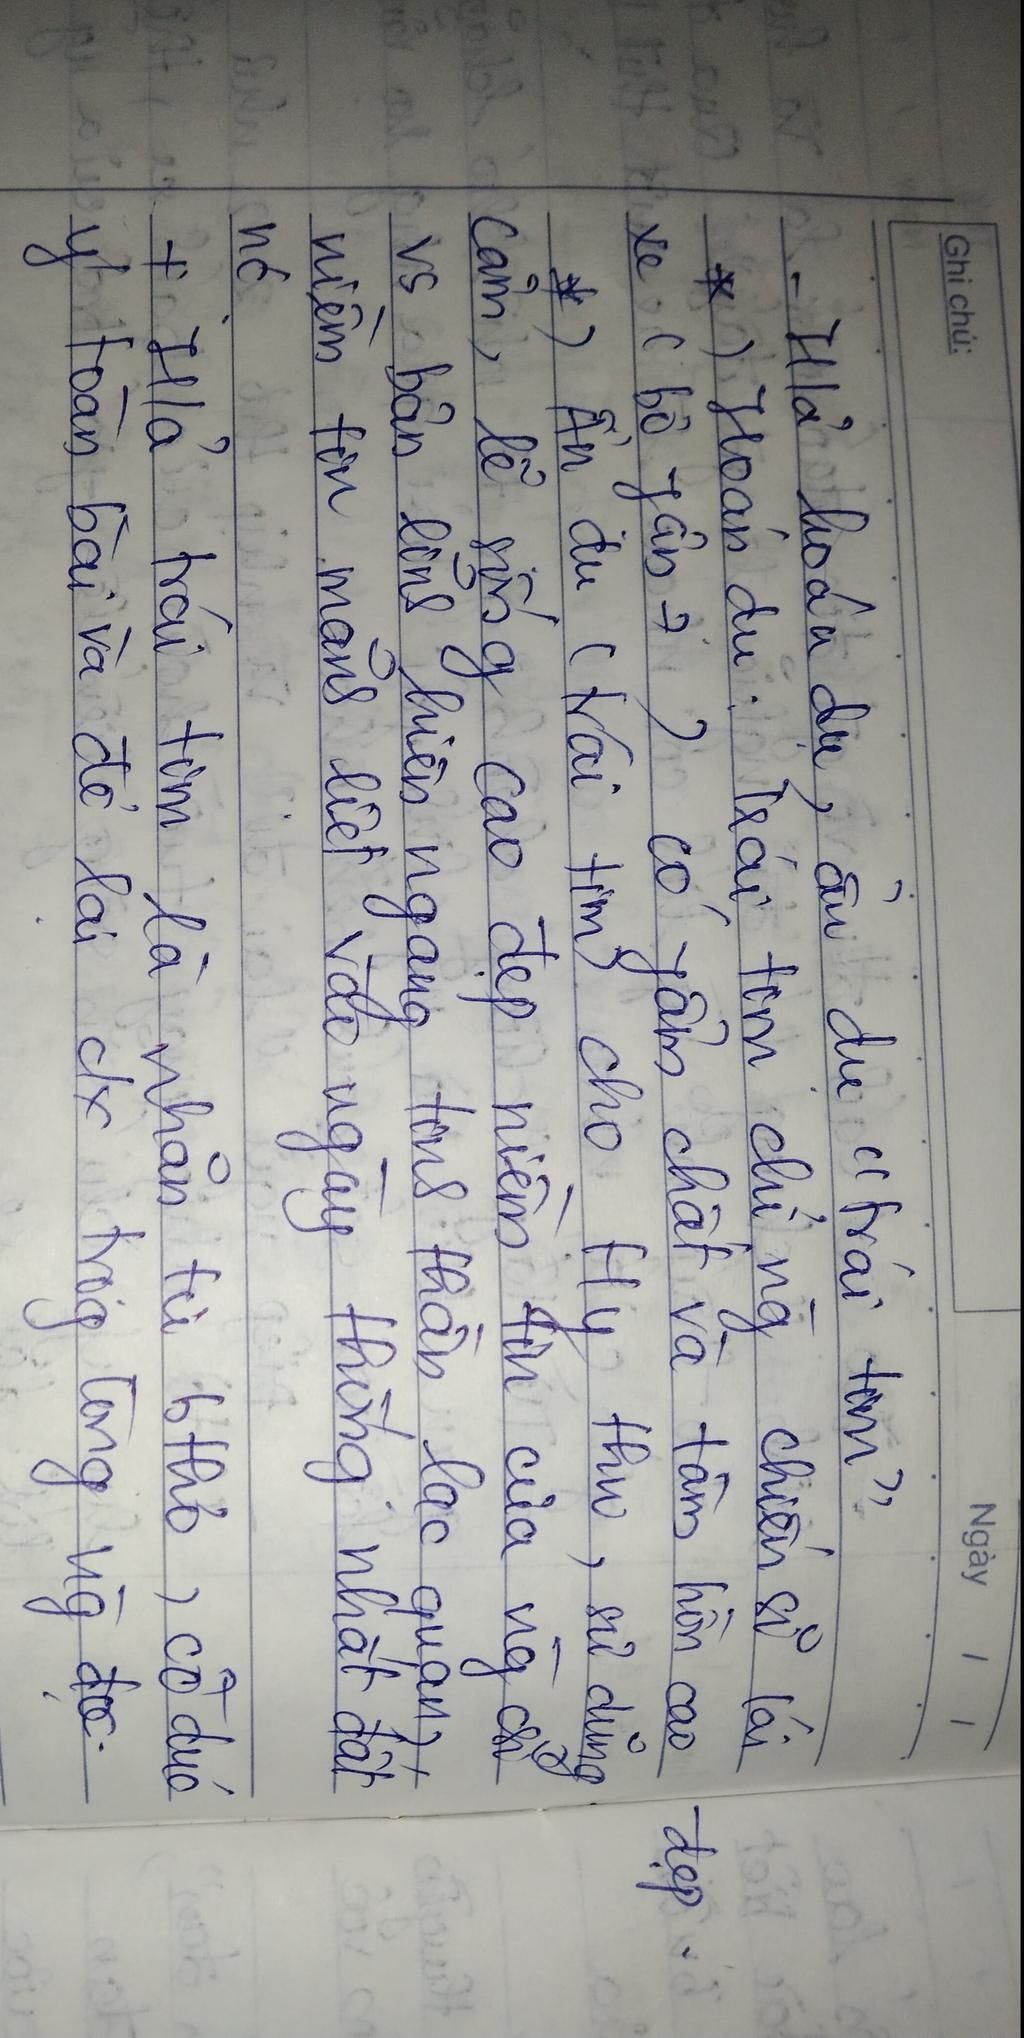 Ghi chú:
Ngày / /
- H/ả hoán dụ, ẩn dụ "trái tim"
*) Hoán dụ: Trái tim chỉ ng` chiến sĩ lái
xe (bộ phận → ) có phẩm chất và tâm hồn cao đẹp.
*) Ẩn dụ (trái tim) cho
cảm, lẽ sống cao đẹp niềm tin của ng`
vs bản lĩnh hiên ngang tinh thần lạc quan,
niềm tin mãnh liệt vào ngày thống nhất đất
nc
+ H/ả trái tim là nhãn tự b thơ, cô đúc
ý toàn bài và để lại c/x trog lòng ng` đọc.